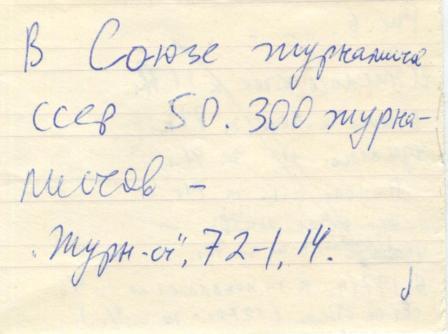 В Союзе журналиста
СССР 50.300 журна-
листов -
"Журн-ст", 72-1, 14.